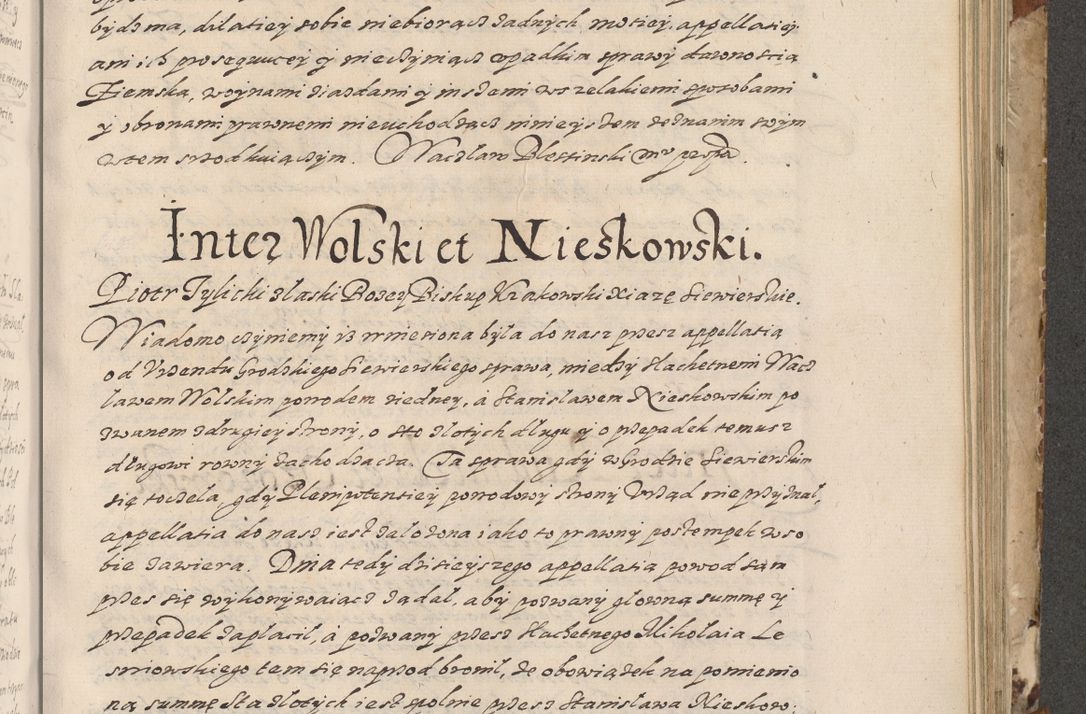 bydz ma, dilatiey sobie niebiorącz żadnych, motiey, appellatiey
ani ich prosequucey y nieczyniącz wpadkim sprawy dawnoscią
Ziemską, woynami ziazdami y inszemi wszelakiemi sposobami
y obronami prawnemi nieuchodząc ninieyszem zeznanim swym
wtem srzodkuiączym. Waczław Blestinski mp
Inter Wolski et Nieskowski.
Piotr Tylicki z łaski Bozey Biskup Krakowski Xiązę Siewierskie.
Wiadomo czyniemy iż wniesiona była do nasz przez appellatią
od Vrzendu Grodzkiego Siewierskiego sprawa, miedzy slachetnem Wacz
lawem Wolskim powodem ziedney, a Stanislawem Nieskowskim po
zwanem zdrugiey strony, o sto złotych długu y o przepadek temusz
długowi rowny zachodzącza. Ta sprawa gdy w Grodzie Siewierskim
się toczeła, gdy Plenipotentiey powodowy strony Vrząd nie przyznal,
appellatia do nasz iest założona iako to prawny postempek w so
bie zawiera. Dnia tedy dzisieyszego appellatią powod sam
przes się wykonywaiącz żądał, aby pozwany głowną summę y
przepadek zapłacił, a pozwany przesz slachetnego Mikołaia Le
sniowskiego tem się naprzod bronił, że obowiązek na pomienio
ną summę sta złotych iest spolnie przesz Stanisława Nieskow: